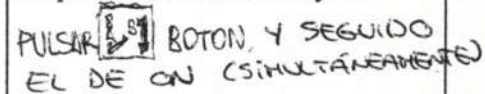 PULSAR BOTON, Y SEGUIDO
EL DE ON (SIMULTÁNEAMENTE)